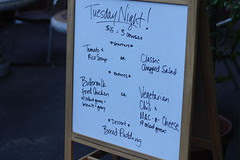 Tuesday Night!
$15 - 3 courses
Starters
Tomato & Rice Soup
or
Classic Chopped Salad
Entrees
Buttermilk Fried Chicken
or
Vegetarian Chili &
Mac-n-Cheese
Dessert
Bread Pudding